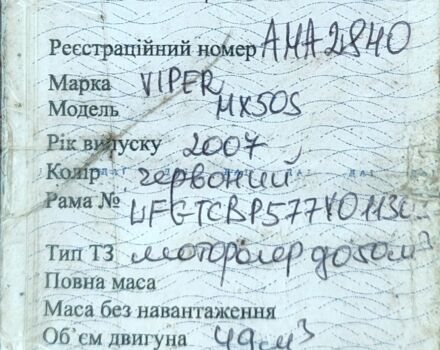 Реєстраційний номер АНА2840
Марка VIPER
Модель MX50S
Рік випуску 2007
Колір червоний
Рама №
Тип ТЗ моторолер до 50 м³
Повна маса
Маса без навантаження
Об'єм двигуна 49 см³